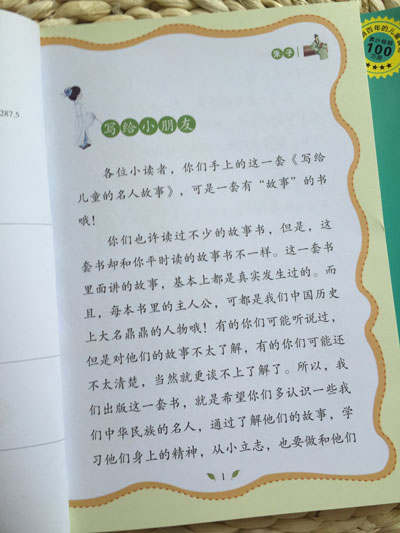 287.5
写给小朋友
各位小读者，你们手上的这一套《写给
儿童的名人故事》，可是一套有“故事”的书
哦！
你们也许读过不少的故事书，但是，这
套书却和你平时读的故事书不一样。这一套书
里面讲的故事，基本上都是真实发生过的。而
且，每本书里的主人公，可都是我们中国历史
上大名鼎鼎的人物哦！有的你们可能听说过，
但是对他们的故事不太了解，有的你们可能还
不太清楚，当然就更谈不上了解了。所以，我
们出版这一套书，就是希望你们多认识一些我
们中华民族的名人，通过了解他们的故事，学
习他们身上的精神，从小立志，也要做和他们
1
100